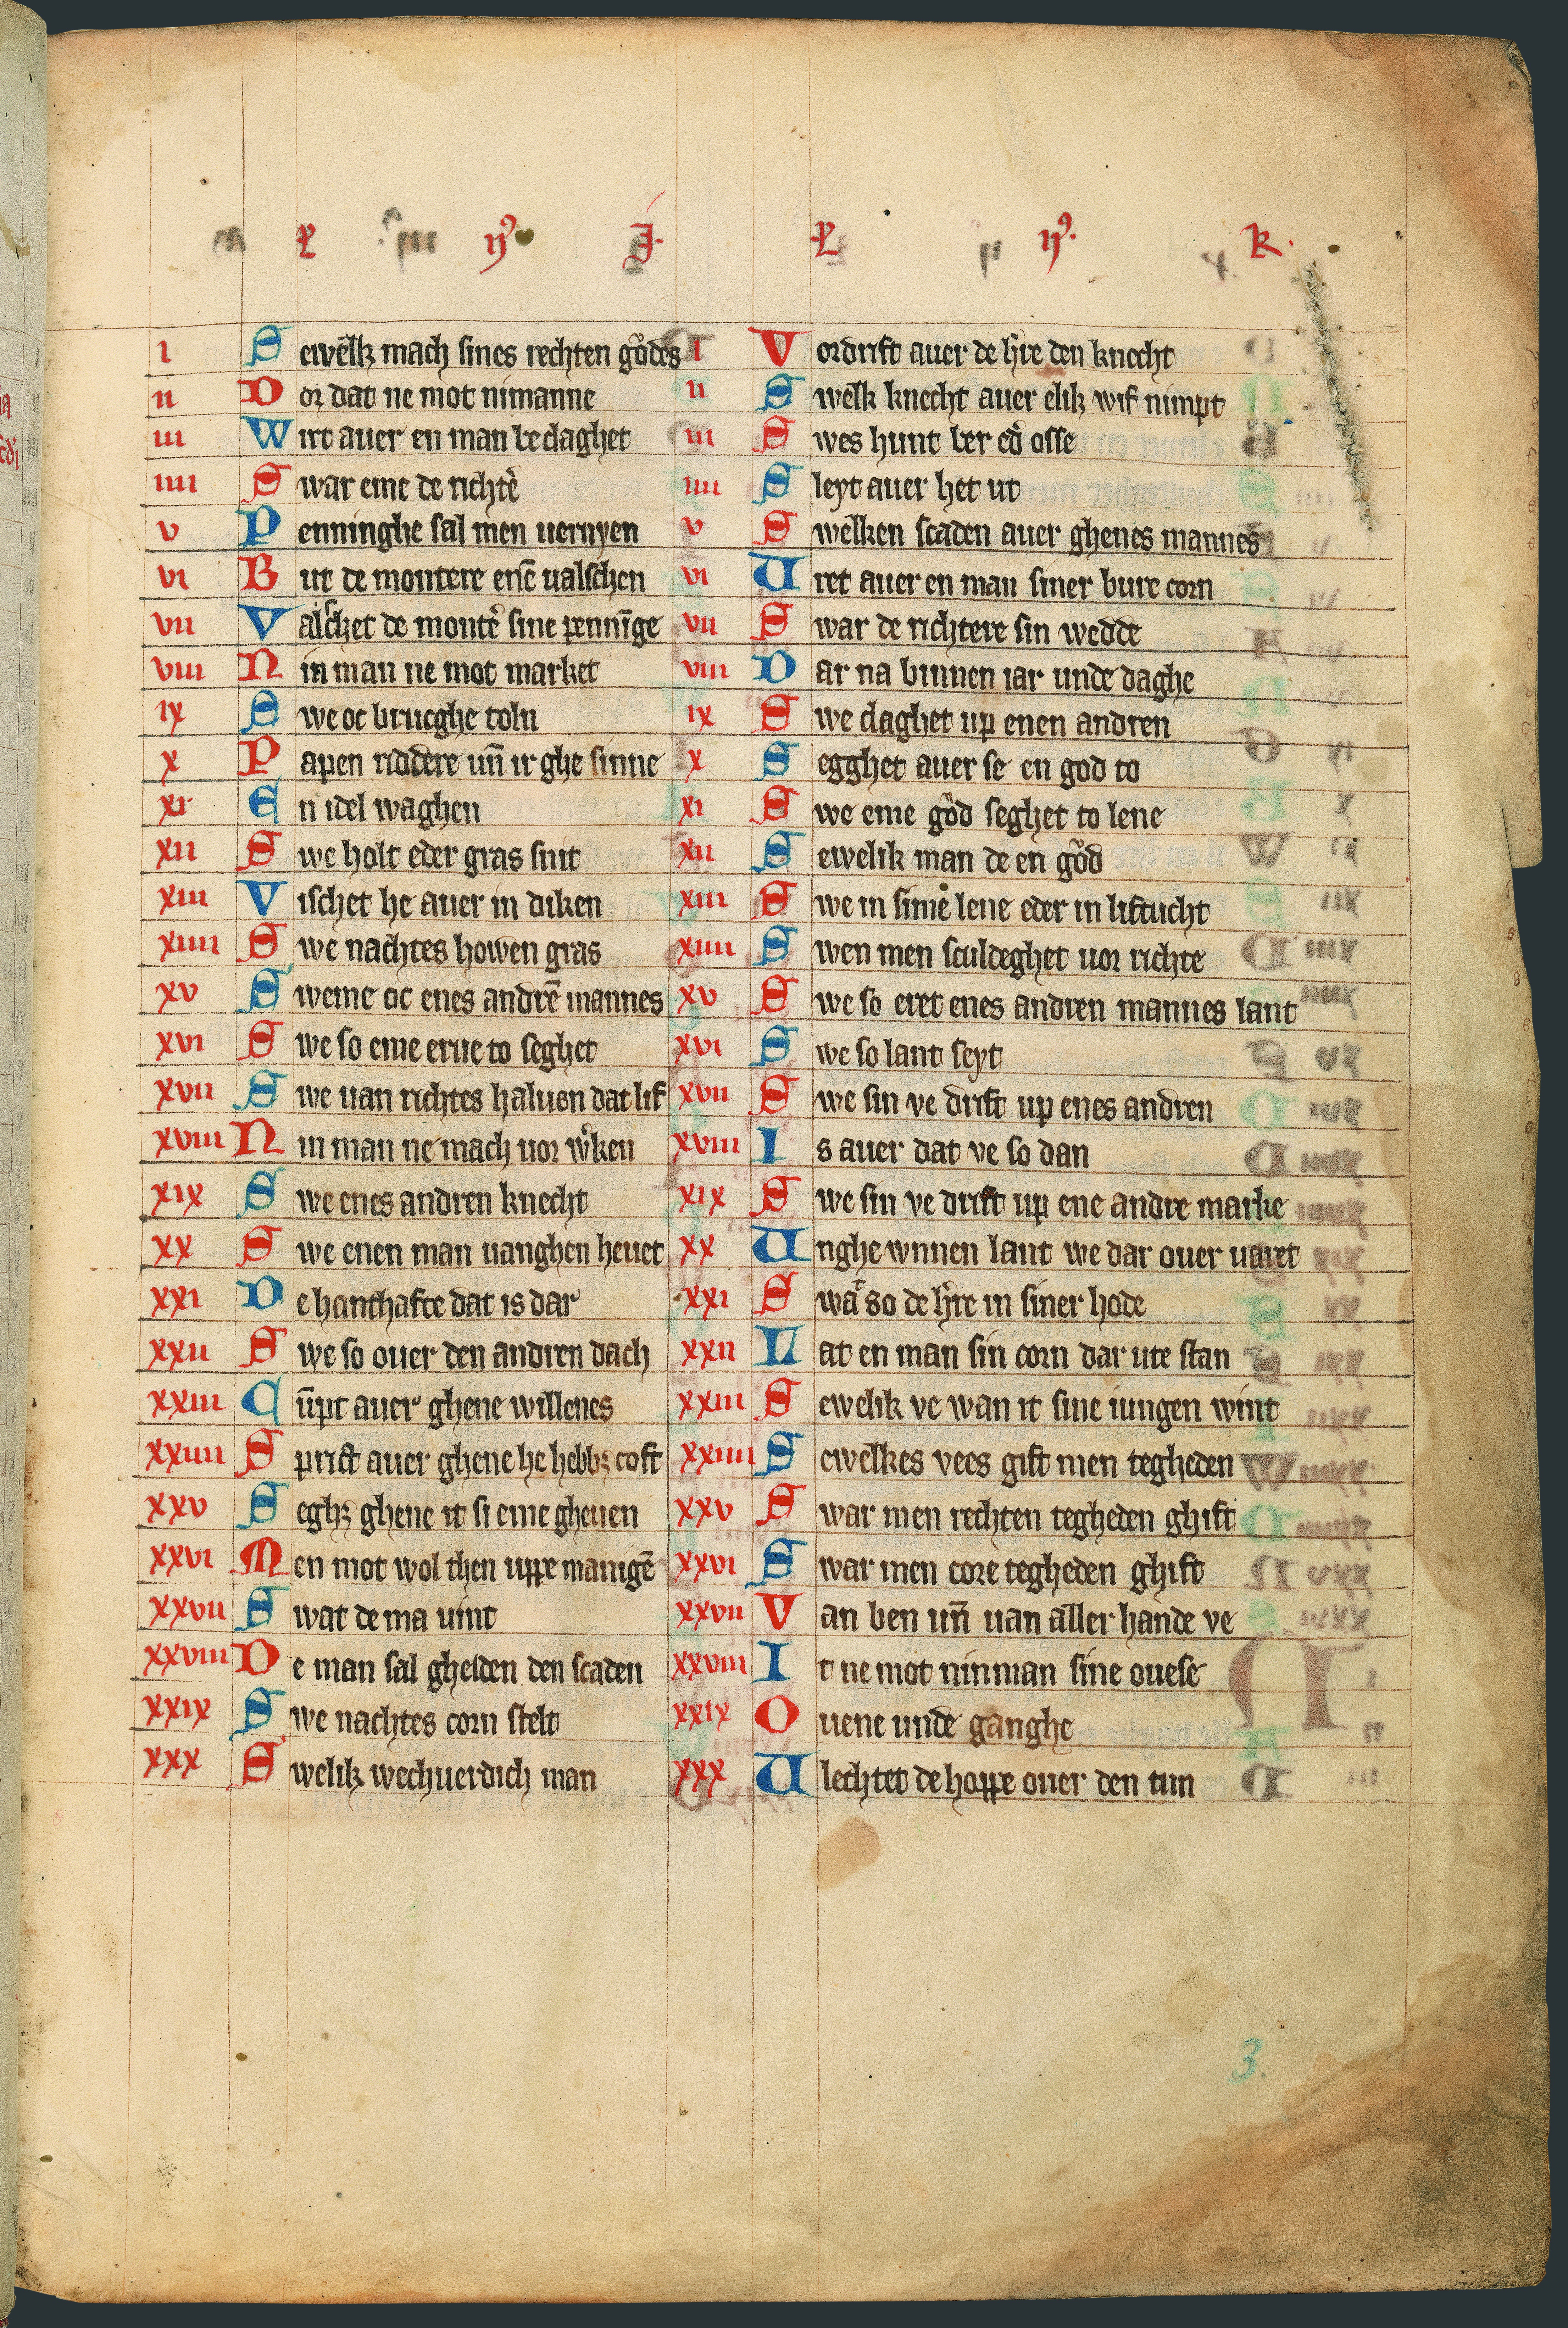 ꝶ ıȷꝰ J.
ı Sewelk mach sines rechten gůdes
ıı Dor dat ne mot nimanne
ııı Wirt auer en man beclaghet
ıııı Swar eme de richtē
v Penninghe sal men uernyen
vı But de montere enē ualschen
vıı Valschet de montē sine pennīge
vııı Nin man ne mot market
ıx Swe oc brucghe toln
x Papen riddere un̄ ir ghe sinne
xı En idel waghen
xıı Swe holt eder gras snit
xııı Vischet he auer in diken
xıııı Swe nachtes howen gras
xv Sweme oc enes andrē mannes
xvı Swe so eme erue to seghet
xvıı Swe uan richtes haluen dat lif
xvııı Nin man ne mach uor wͦken
xıx Swe enes andren knecht
xx Swe enen man uanghen heuet
xxı De hanthafte dat is dar
xxıı Swe so ouer den andren dach
xxııı Cūpt auer ghene willenes
xxıııı Sprict auer ghene he hebbꝫ coft
xxv Seghꝫ ghene it si eme gheuen
xxvı Men mot wol then uppe manigē
xxvıı Swat de ma uint
xxvııı De man sal ghelden den scaden
xxıx Swe nachtes corn stelt
xxx Swelik wechuerdich man
ꝶ ıȷꝰ. K.
ı Vordrift auer de h̄re den knecht
ıı Swelk knecht auer elik wif nimpt
ııı Swes hunt ber ed̄ osse
ıııı Sleyt auer het ut
v Swelken scaden auer ghenes mannes
vı Uret auer en man siner bure corn
vıı Swar de richtere sin wedde
vııı Dar na binnen iar unde daghe
ıx Swe claghet up enen andren
x Segghet auer se en god to
xı Swe eme gůd seghet to lene
xıı Sewelik man de en gůd
xııı Swe in simē lene eder in liftucht
xıııı Swen men sculdeghet uor richte
xv Swe so eret enes andren mannes lant
xvı Swe so lant seyt
xvıı Swe sin ve drift up enes andren
xvııı Is auer dat ve so dan
xıx Swe sin ve drift up ene andre marke
xx Unghe wnnen lant we dar ouer uaret
xxı Swaͬ so de h̄re in siner hode
xxıı Lat en man sin corn dar ute stan
xxııı Sewelik ve wan it sine iungen wint
xxıııı Sewelkes vees gift men tegheden
xxv Swar men rechten tegheden ghift
xxvı Swar men core tegheden ghift
xxvıı Van ben un̄ uan aller hande ve
xxvııı It ne mot ninman sine ouese
xxıx Ouene unde ganghe
xxx Ulechtet de hoppe ouer den tun
3.